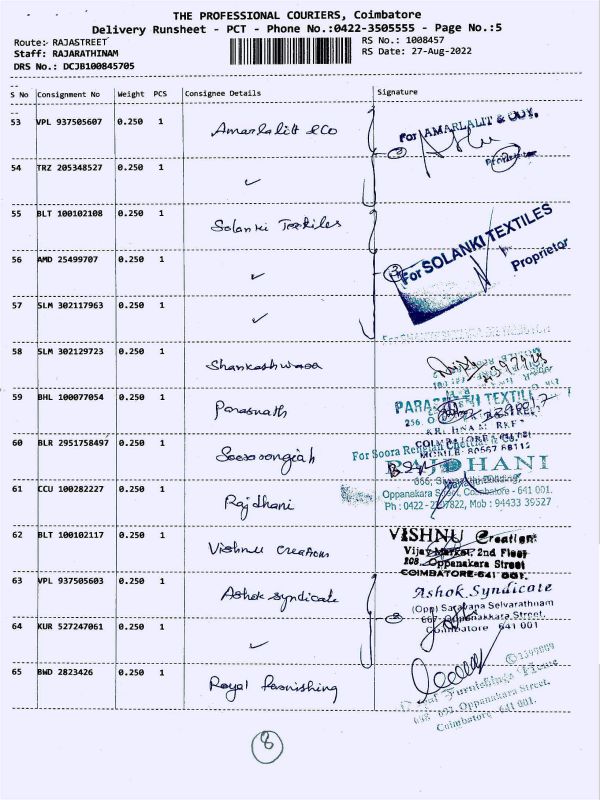 THE PROFESSIONAL COURIERS, Coimbatore
Delivery Runsheet - PCT - Phone No.:0422-3505555 - Page No.:5
Route:- RAJASTREET
RS No.: 1008457
Staff: RAJARATHINAM
RS Date: 27-Aug-2022
DRS No.: DCJB100845705
S No Consignment No Weight PCS Consignee Details Signature
53 VPL 937505607 0.250 1 Amarlalit & Co
For AMARLALIT & COY.
54 TRZ 205348527 0.250 1 ✓
55 BLT 100102108 0.250 1 Solanki Textiles
For SOLANKI TEXTILES
Proprietor
56 AMD 25499707 0.250 1 ✓
57 SLM 302117963 0.250 1 ✓
58 SLM 302129723 0.250 1 Shankeshwara
59 BHL 100077054 0.250 1 Parasnath
60 BLR 2951758497 0.250 1 Soorarengiah
For Soora
RAJDHANI
61 CCU 100282227 0.250 1 Rajdhani
Oppanakara Street, Coimbatore - 641 001.
Mob : 94433 39527
62 BLT 100102117 0.250 1 Vishnu Creations
VISHNU Creation
Vijay Market, 2nd Floor
208, Oppanakara Street
COIMBATORE-641 001.
63 VPL 937505603 0.250 1 Ashok Syndicate
Ashok Syndicate
(Opp) Saravana Selvarathnam
667, Oppanakkara Street,
Coimbatore 641 001
64 KUR 527247061 0.250 1 ✓
65 BWD 2823426 0.250 1 Royal Farnishing
Oppanakara Street,
Coimbatore - 641 001.
8